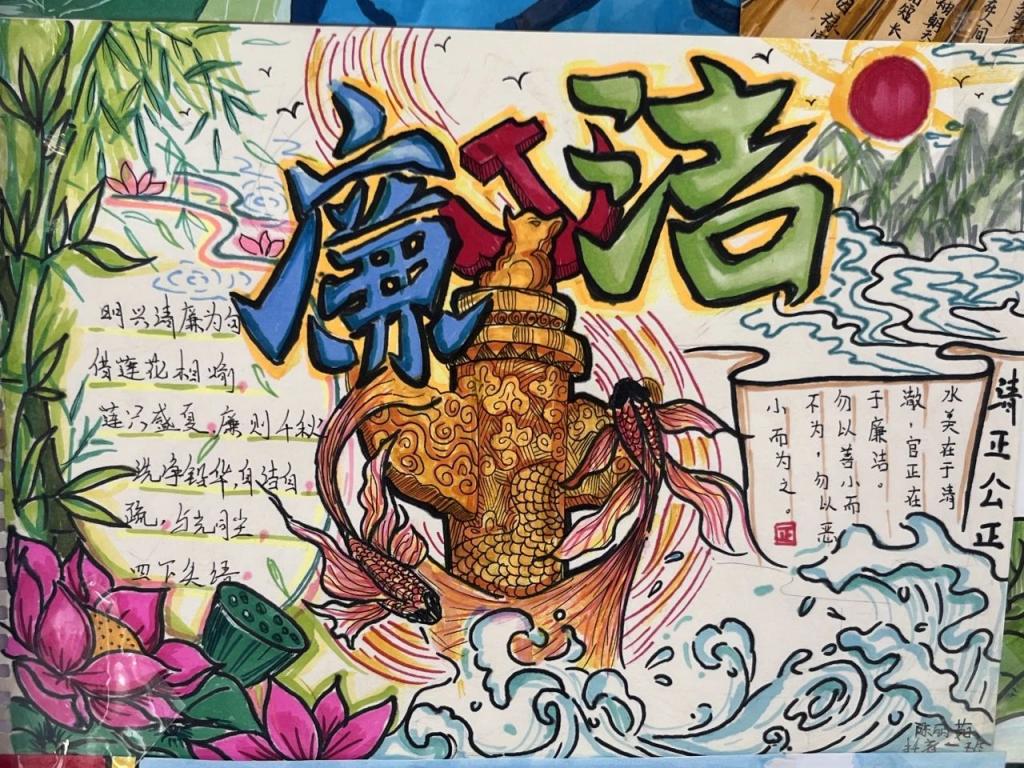 廉洁
明兴清廉为
借莲花相喻
莲兴盛夏,廉则千秋
洗净铅华,自洁自
疏,与光同尘
水美在于清
澈,官正在
于廉洁。
勿以善小而
不为,勿以恶
小而为之。
正
清正公正